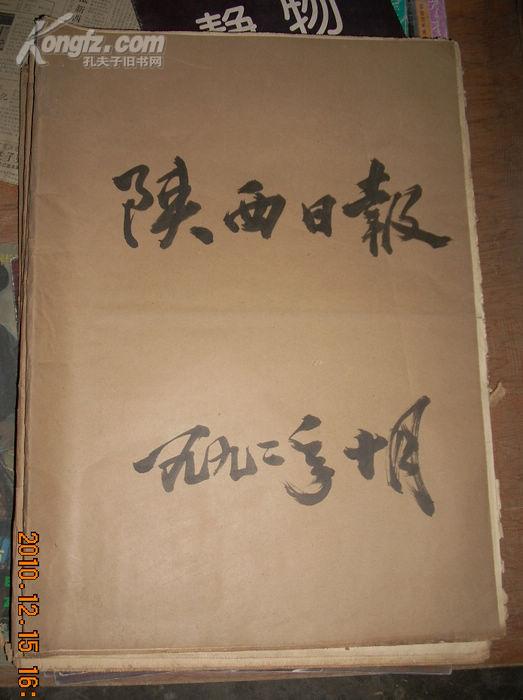 Kongfz.com
孔夫子旧书网
静物
陕西日報
一九九二年十月
2010.12.15 16: